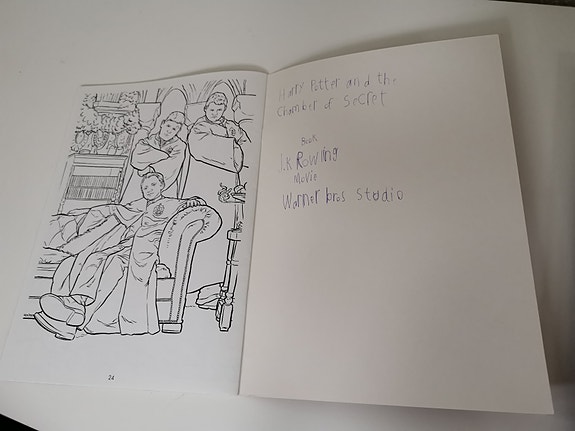 Harry Potter and the
Chamber of Secret
Book
J.K Rowling
Movie
Warner bros Studio
24